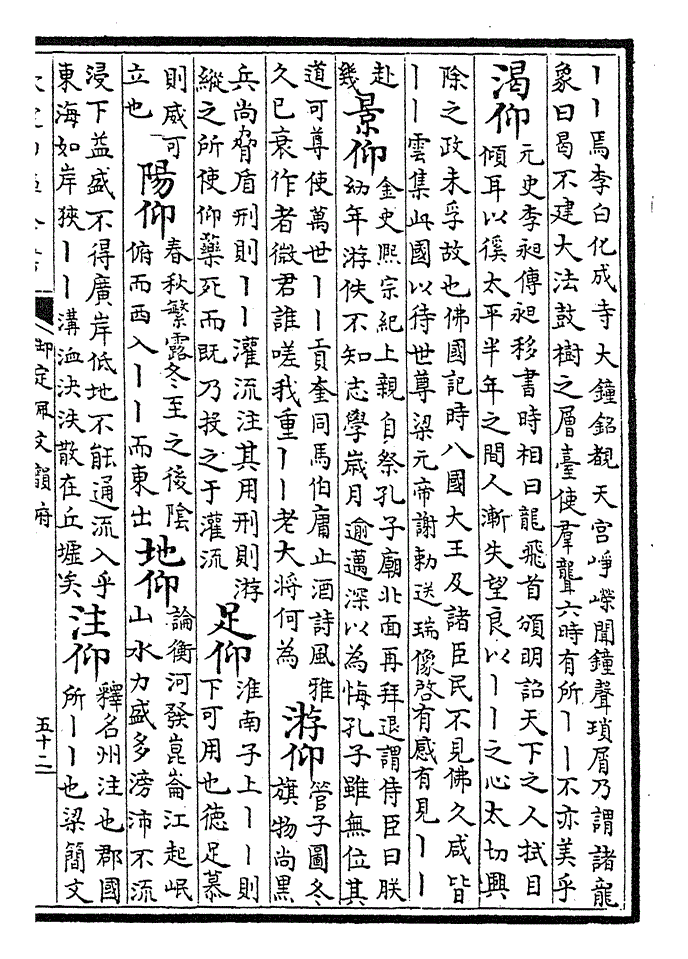 丨丨焉李白化成寺大鐘銘觀天宮崢嶸聞鐘聲瑣屑乃謂諸龍
象曰曷不建大法鼓樹之層臺使羣聾六時有所丨丨不亦美乎
渴仰
元史李昶傳昶移書時相曰龍飛首頒明詔天下之人拭目
傾耳以徯太平半年之間人漸失望良以丨丨之心太切興
除之政未孚故也佛國記時八國大王及諸臣民不見佛久咸皆
丨丨雲集此國以待世尊梁元帝謝勅送瑞像啓有感有見丨丨
赴
幾
景仰
金史熙宗紀上親自祭孔子廟北面再拜退謂侍臣曰朕
幼年游佚不知志學歲月逾邁深以為悔孔子雖無位其
道可尊使萬世丨丨貢奎同馬伯庸止酒詩風雅
久已衰作者微君誰嗟我重丨丨老大將何為
游仰
管子圖冬
旗物尚黑
兵尚脅盾刑則丨丨灌流注其用刑則游
縱之所使仰藥死而既乃投之于灌流
足仰
淮南子上丨丨則
下可用也德足慕
則威可
立也
陽仰
春秋繁露冬至之後陰
俯而西入丨丨而東出
地仰
論衡河發崑崙江起岷
山水力盛多滂沛不流
浸下益盛不得廣岸低地不能通流入乎
東海如岸狹丨丨溝洫決泆散在丘墟矣
注仰
釋名州注也郡國
所丨丨也梁簡文
御定佩文韻府
五十二